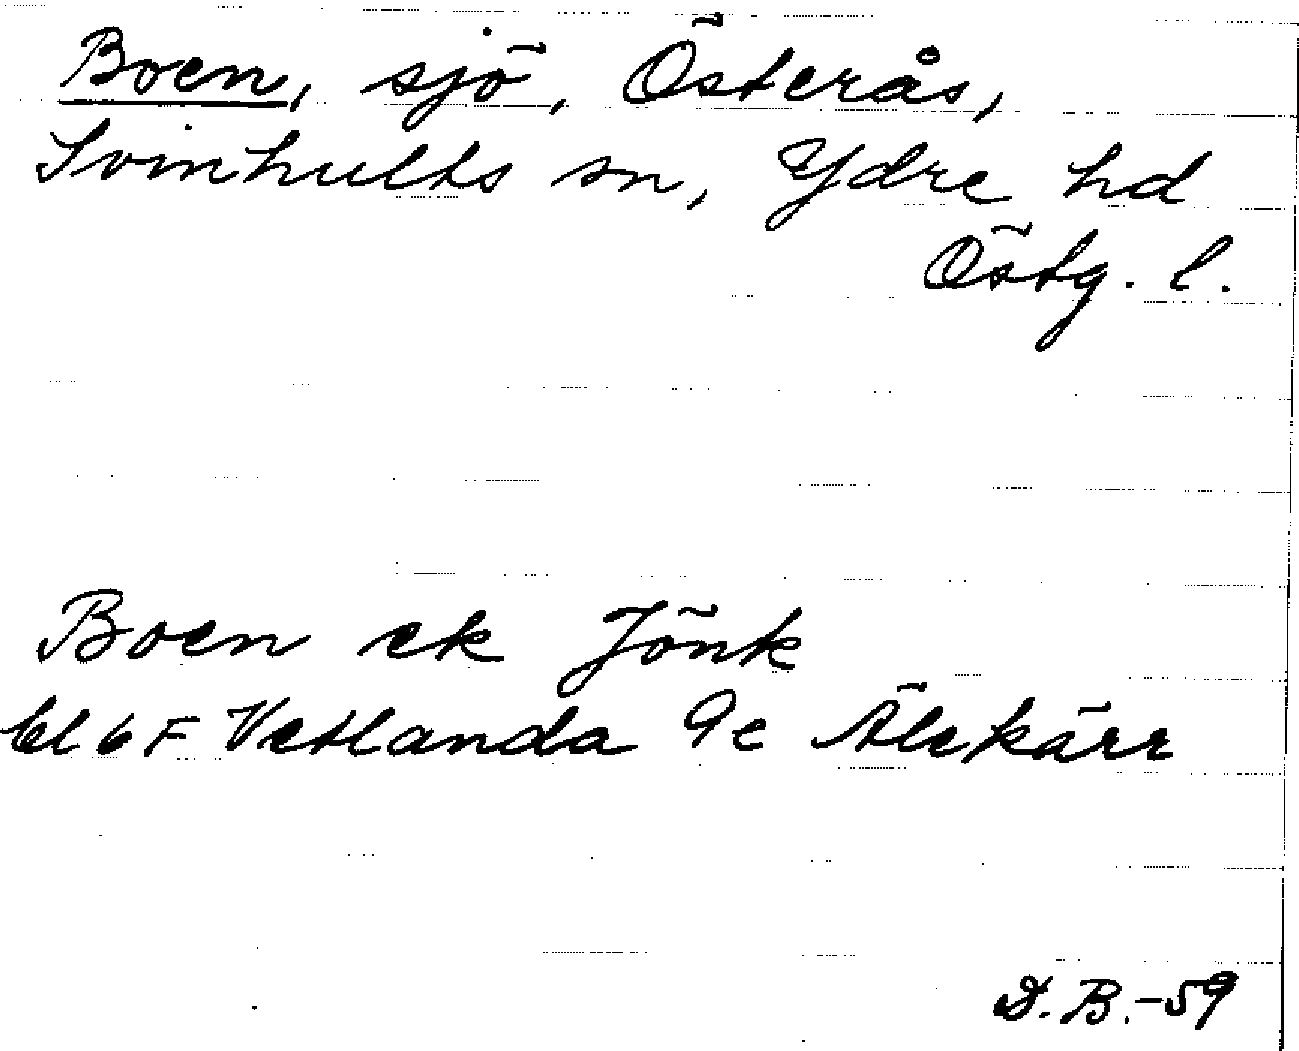 Boen, sjö, Österås,
Svinhults sn, Ydre hd
Östg. l.
Boen ek Jönk
bl 6 F Vetlanda 9e Älekärr
D.B.-59